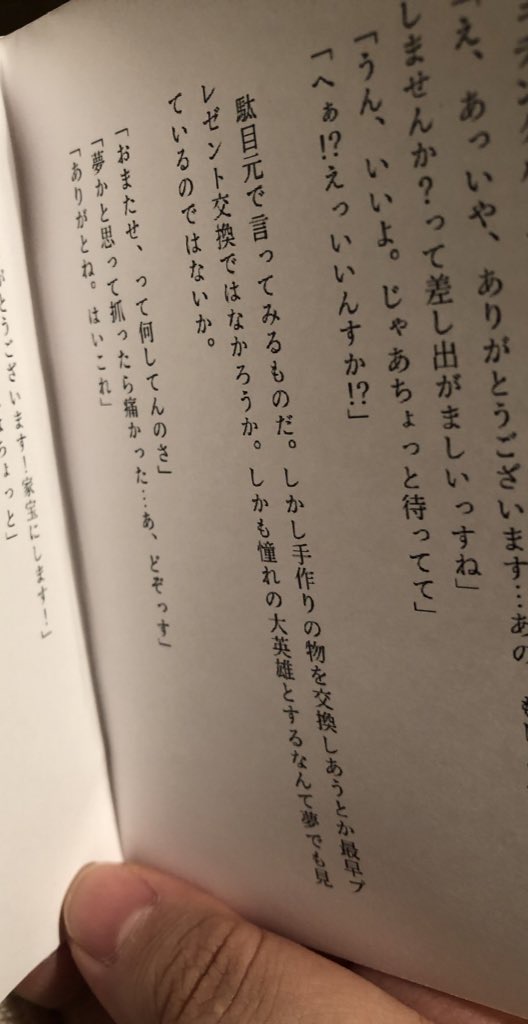 「え、あっいや、ありがとうございます…あの
しませんか？って差し出がましいっすね」
「うん、いいよ。じゃあちょっと待ってて」
「へぁ!?えっいいんすか!?」
駄目元で言ってみるものだ。しかし手作りの物を交換しあうとか最早プ
レゼント交換ではなかろうか。しかも憧れの大英雄とするなんて夢でも見
ているのではないか。
「おまたせ、って何してんのさ」
「夢かと思って抓ったら痛かった…あ、どぞっす」
「ありがとね。はいこれ」
がとうございます！家宝にします！」
ちょっと」